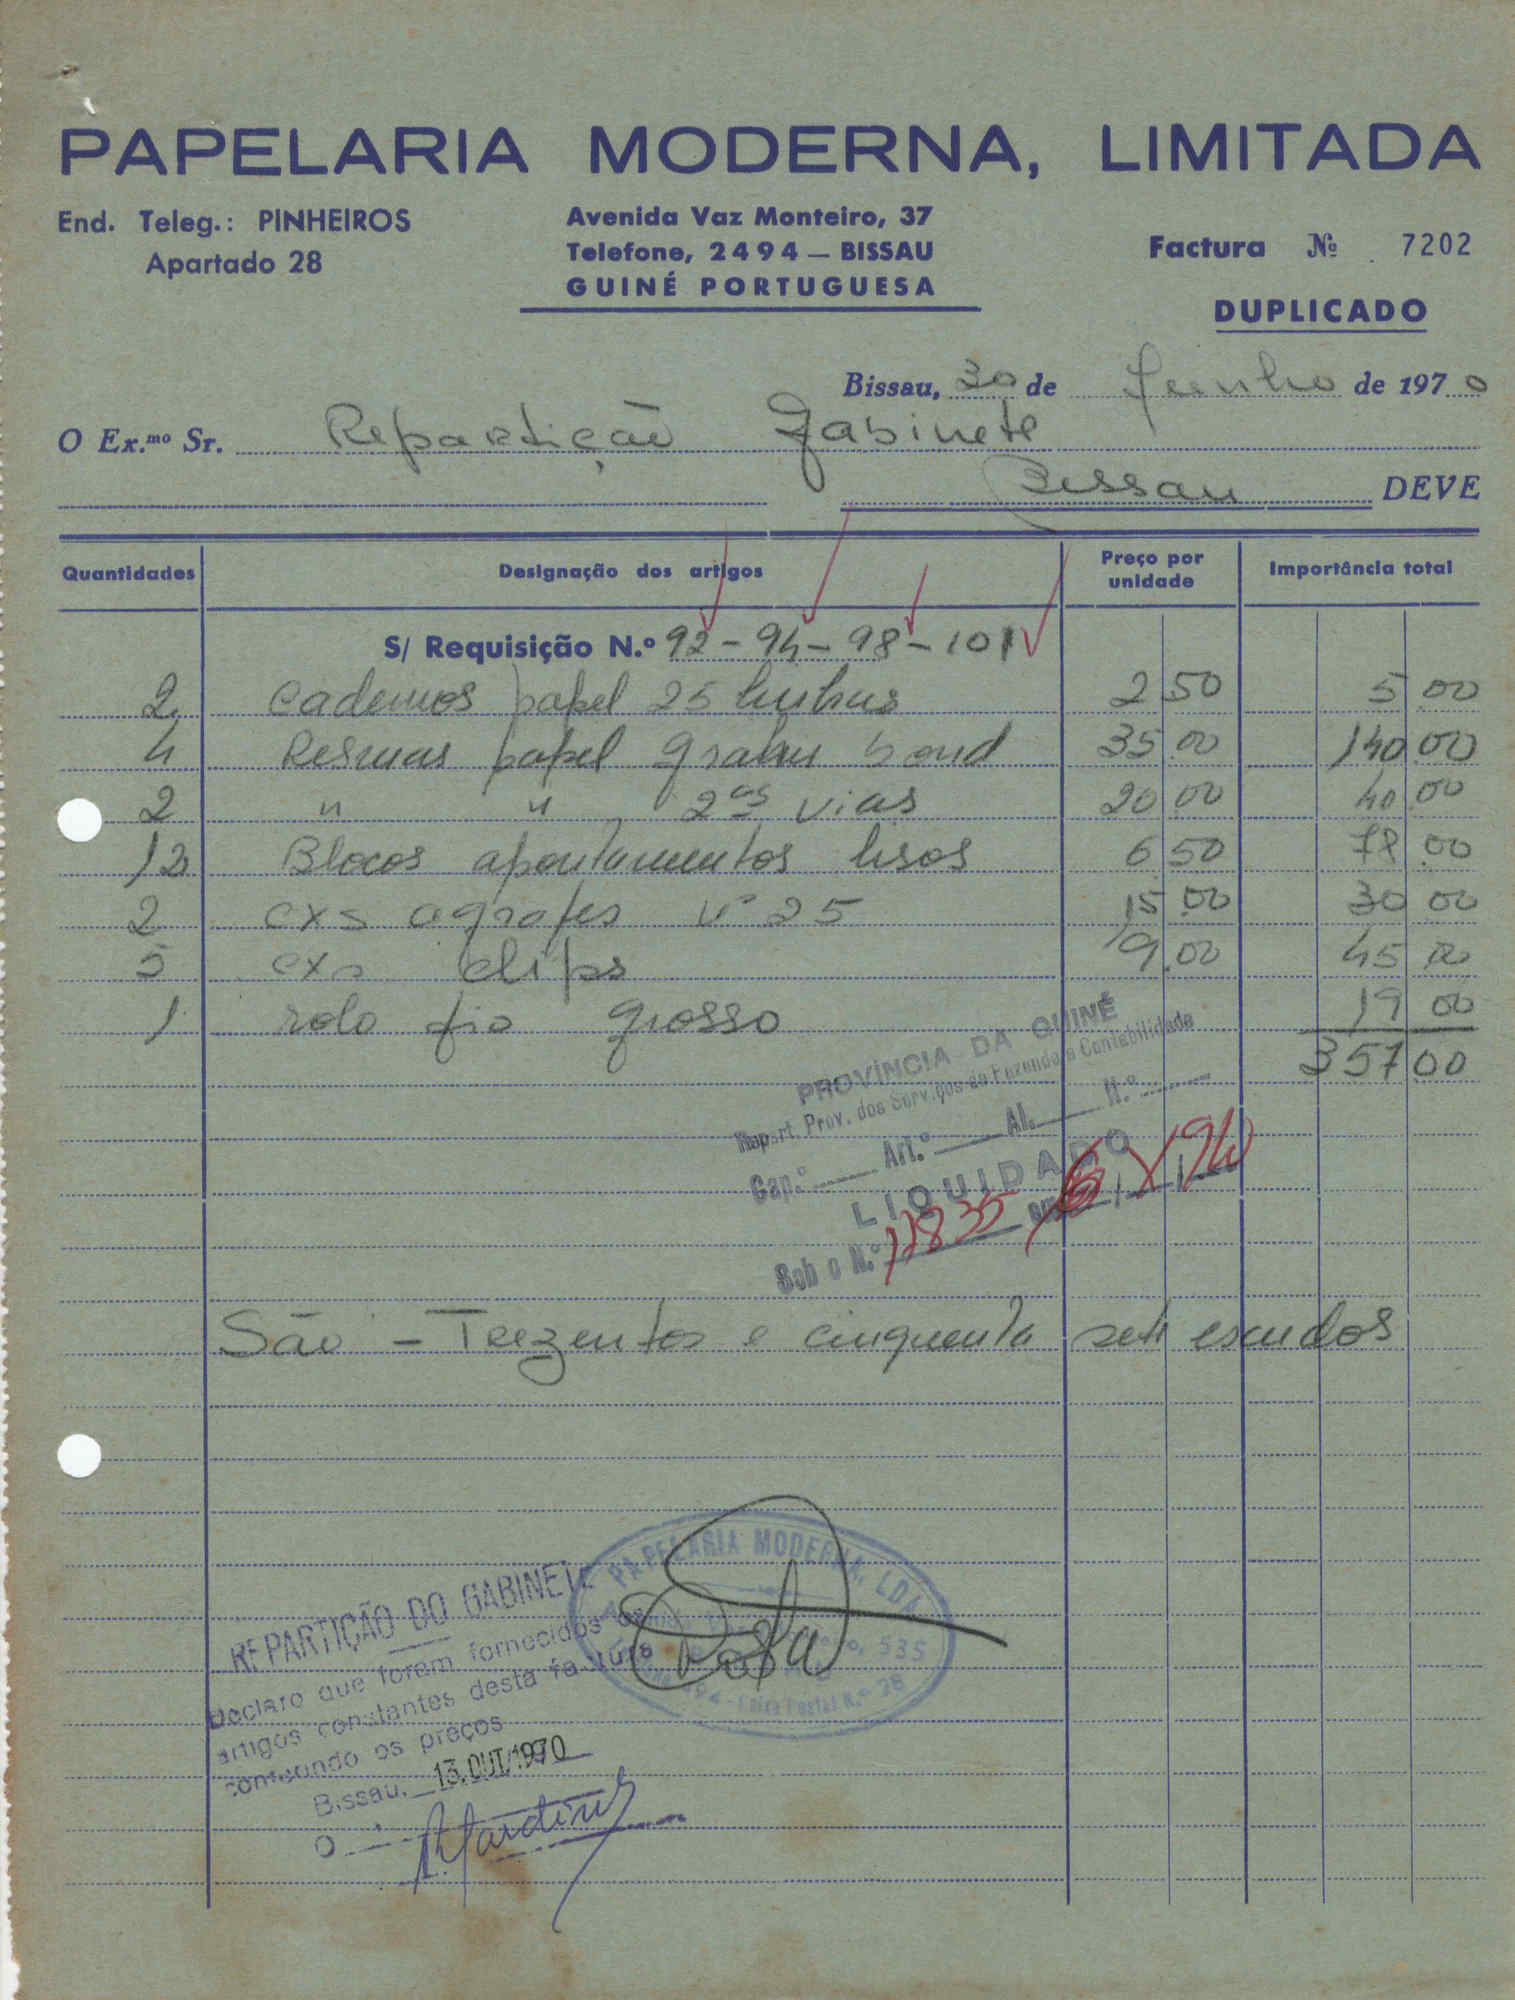 PAPELARIA MODERNA, LIMITADA
End. Teleg.: PINHEIROS
Apartado 28
Avenida Vaz Monteiro, 37
Telefone, 2494 — BISSAU
GUINÉ PORTUGUESA
Factura Nº 7202
DUPLICADO
Bissau, 30 de Junho de 1970
O Ex.mo Sr. Repartição Gabinete
Bissau DEVE
Quantidades Designação dos artigos Preço por unidade Importância total
S/ Requisição N.º 92 - 94 - 98 - 101
2 Cadernos papel 25 linhas 2 50 5 00
4 Resmas papel bond 35 00 140 00
2 " " 2as vias 20 00 40 00
12 Blocos apontamentos lisos 6 50 78 00
2 cxs agrafes nº 25 15 00 30 00
5 cxs clips 9 00 45 00
1 rolo fio grosso 19 00
357 00
PROVÍNCIA DA GUINÉ
Repart. Prov. dos Serviços de Fazenda e Contabilidade
Cap.º Art.º Al. N.º
LIQUIDADO
Sob o N.º 11835 em
São - Trezentos e cinquenta sete escudos
PAPELARIA MODERNA, LDA
535
Caixa Postal N.º 28
Costa
REPARTIÇÃO DO GABINETE
Declaro que foram fornecidos os
artigos constantes desta factura
conferindo os preços
Bissau, 13. OUT. 1970
O
Martins